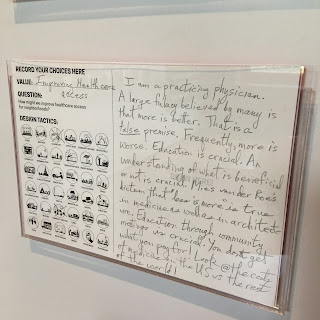 RECORD YOUR CHOICES HERE
VALUE: Improving Healthcare
access
QUESTION:
How might we improve healthcare access
for neighborhoods?
DESIGN TACTICS:
I am a practicing physician.
A large falacy believed by many is
that more is better. That is a
false premise. Frequently, more is
worse. Education is crucial. An
understanding of what is beneficial
or not is crucial. Mies van der Roe's
dictum that less is more is true
in medicine as well as in architect-
ure. Education through community
meetings is crucial. You don't get
what you pay for! Look @ the costs
of medicine in the US vs the rest
of the world!